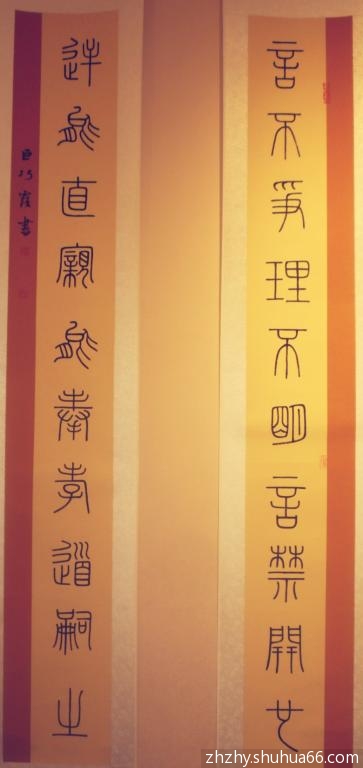 言不爭理不明言禁開也
逆能直親能奉孝道嗣之
書
zhzhy.shuhua66.com